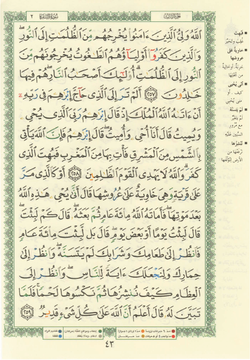 ٱللَّهُ وَلِىُّ ٱلَّذِينَ ءَامَنُوا۟ يُخْرِجُهُم مِّنَ ٱلظُّلُمَـٰتِ إِلَى ٱلنُّورِ
وَٱلَّذِينَ كَفَرُوٓا۟ أَوْلِيَآؤُهُمُ ٱلطَّـٰغُوتُ يُخْرِجُونَهُم مِّنَ
ٱلنُّورِ إِلَى ٱلظُّلُمَـٰتِ أُو۟لَـٰٓئِكَ أَصْحَـٰبُ ٱلنَّارِ هُمْ فِيهَا
خَـٰلِدُونَ ٢٥٧ أَلَمْ تَرَ إِلَى ٱلَّذِى حَآجَّ إِبْرَٰهِـۧمَ فِى رَبِّهِۦٓ
أَنْ ءَاتَىٰهُ ٱللَّهُ ٱلْمُلْكَ إِذْ قَالَ إِبْرَٰهِـۧمُ رَبِّىَ ٱلَّذِى يُحْىِۦ
وَيُمِيتُ قَالَ أَنَا۠ أُحْىِۦ وَأُمِيتُ قَالَ إِبْرَٰهِـۧمُ فَإِنَّ ٱللَّهَ يَأْتِى
بِٱلشَّمْسِ مِنَ ٱلْمَشْرِقِ فَأْتِ بِهَا مِنَ ٱلْمَغْرِبِ فَبُهِتَ ٱلَّذِى
كَفَرَ وَٱللَّهُ لَا يَهْدِى ٱلْقَوْمَ ٱلظَّـٰلِمِينَ ٢٥٨ أَوْ كَٱلَّذِى مَرَّ
عَلَىٰ قَرْيَةٍ وَهِىَ خَاوِيَةٌ عَلَىٰ عُرُوشِهَا قَالَ أَنَّىٰ يُحْىِۦ هَـٰذِهِ ٱللَّهُ
بَعْدَ مَوْتِهَا فَأَمَاتَهُ ٱللَّهُ مِا۟ئَةَ عَامٍ ثُمَّ بَعَثَهُۥ قَالَ كَمْ لَبِثْتَ
قَالَ لَبِثْتُ يَوْمًا أَوْ بَعْضَ يَوْمٍ قَالَ بَل لَّبِثْتَ مِا۟ئَةَ عَامٍ
فَٱنظُرْ إِلَىٰ طَعَامِكَ وَشَرَابِكَ لَمْ يَتَسَنَّهْ وَٱنظُرْ إِلَىٰ
حِمَارِكَ وَلِنَجْعَلَكَ ءَايَةً لِّلنَّاسِ وَٱنظُرْ إِلَى
ٱلْعِظَامِ كَيْفَ نُنشِزُهَا ثُمَّ نَكْسُوهَا لَحْمًا فَلَمَّا
تَبَيَّنَ لَهُۥ قَالَ أَعْلَمُ أَنَّ ٱللَّهَ عَلَىٰ كُلِّ شَىْءٍ قَدِيرٌ ٢٥٩
٤٣